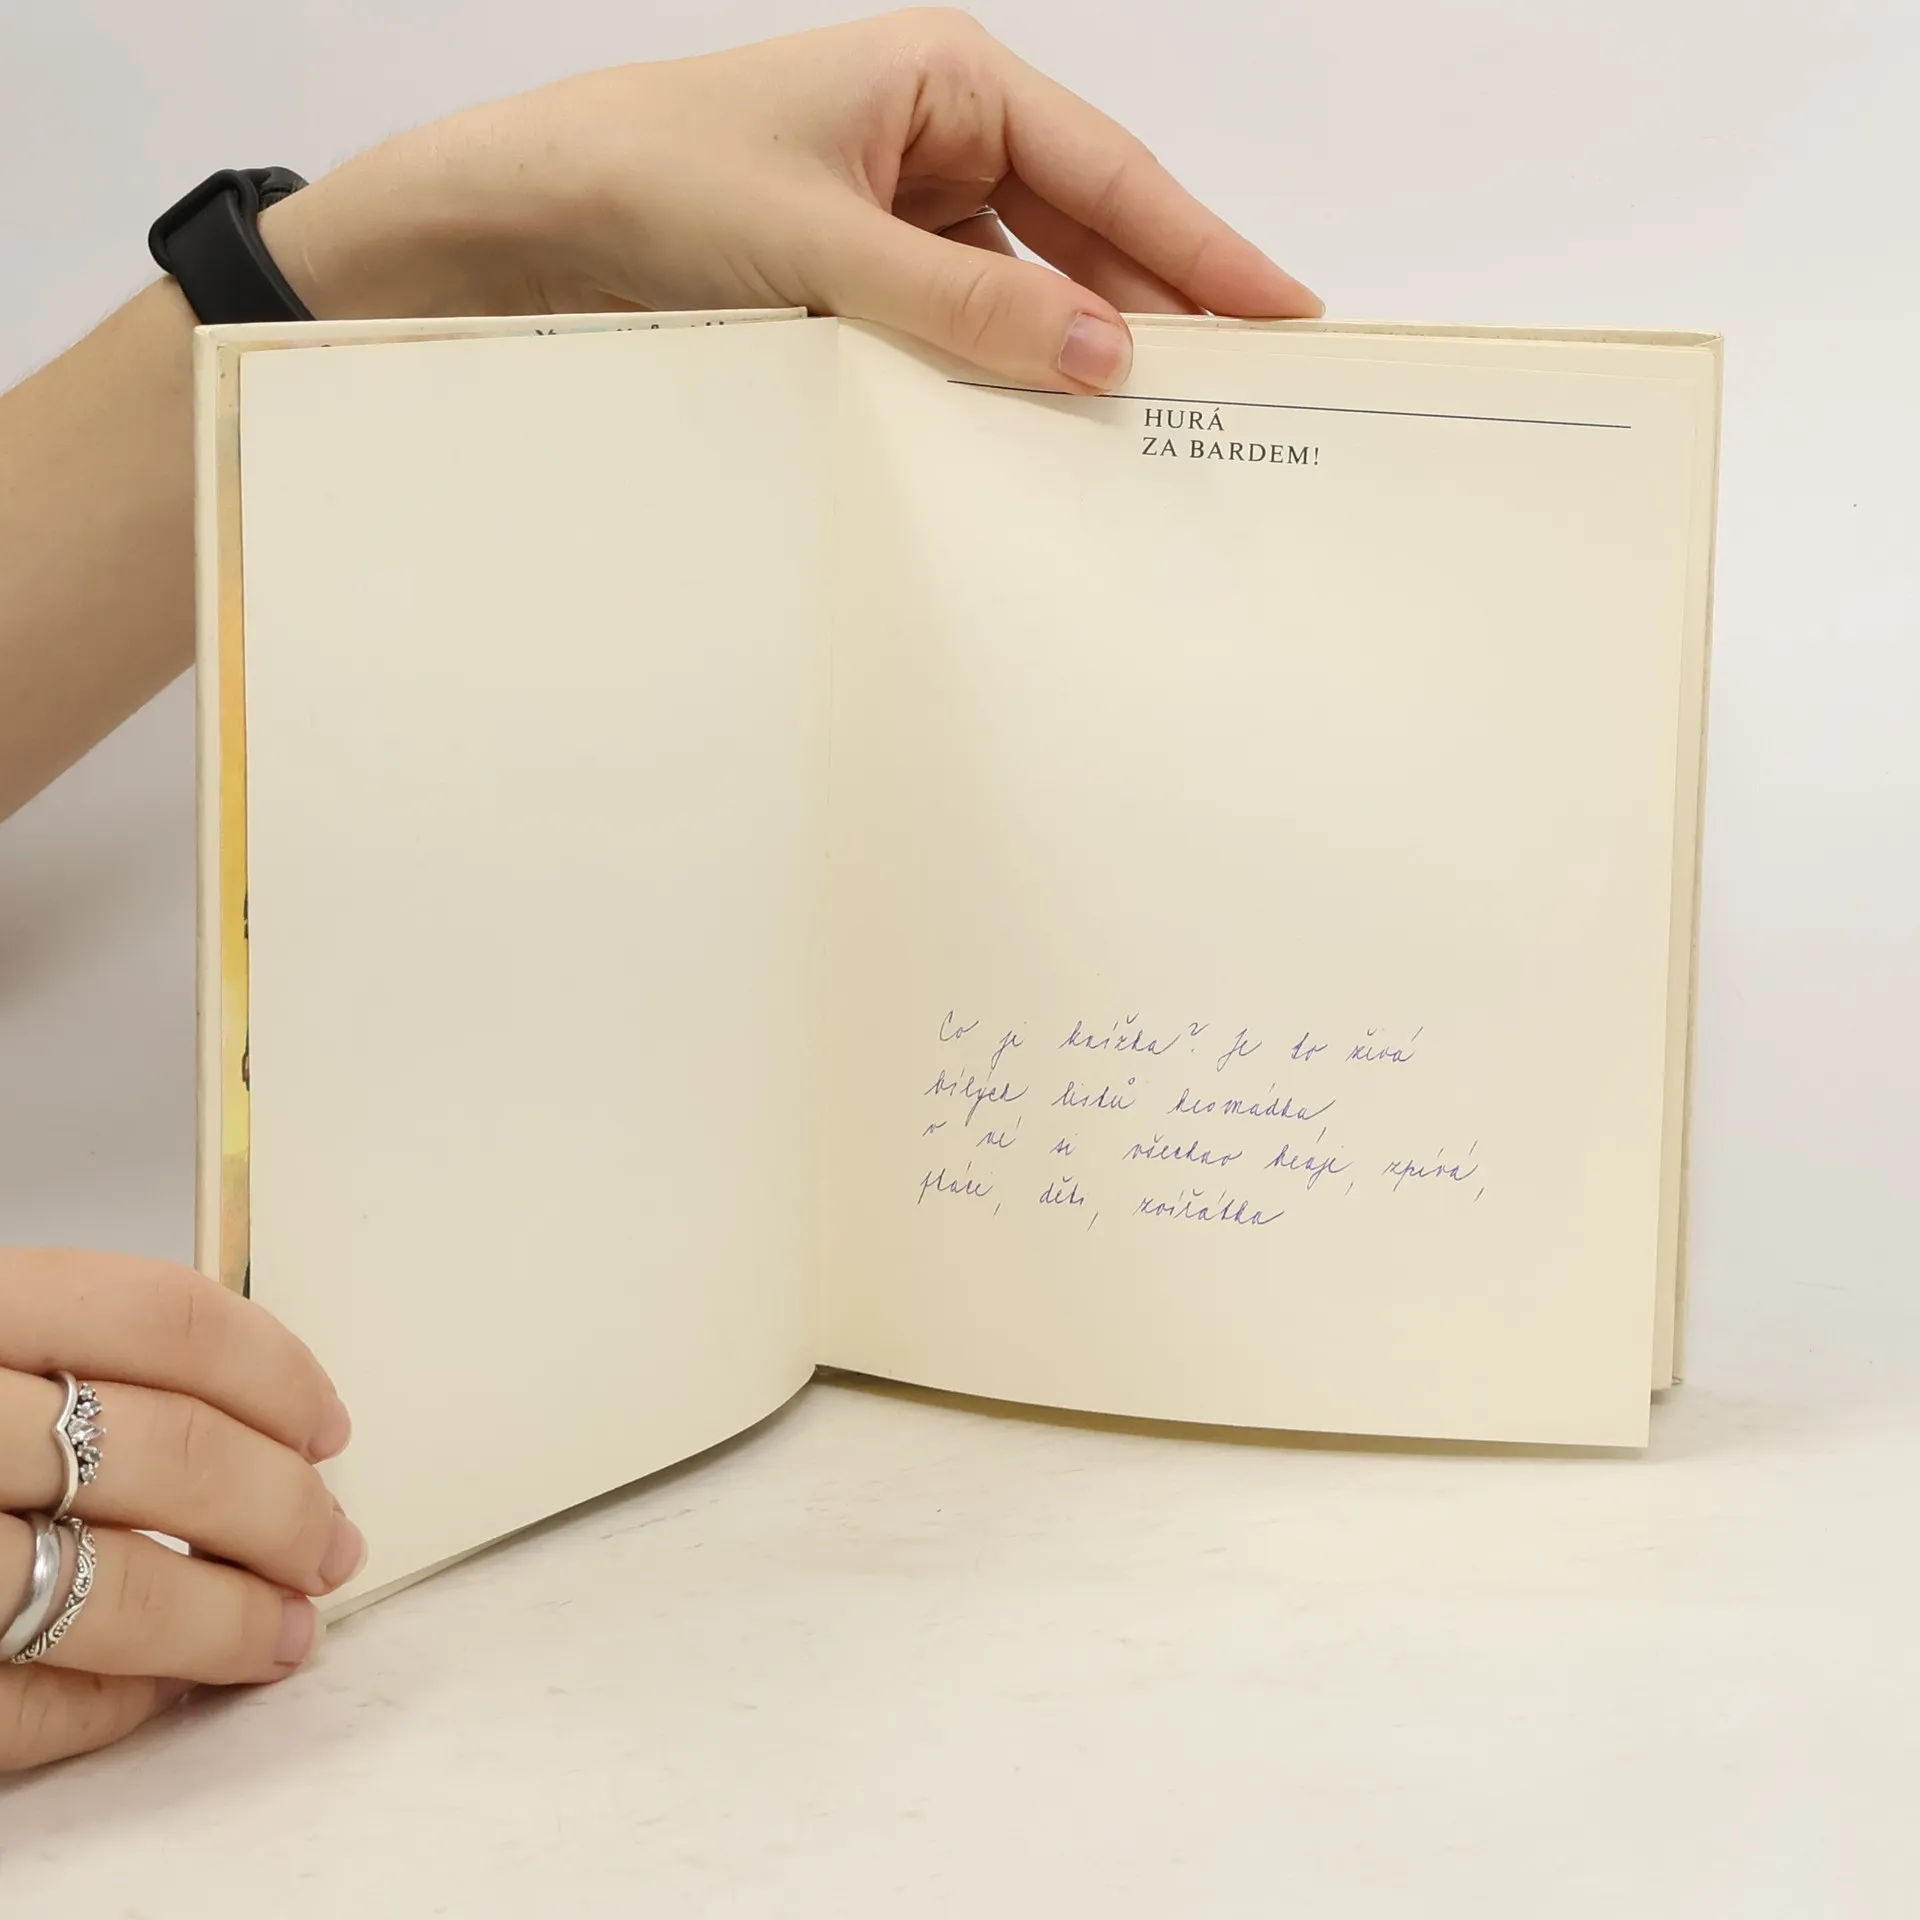 HURÁ
ZA BARDEM!
Co je knížka? Je to živá
bílých lístků hromádka,
v ní si všechno hraje, zpívá,
ptáci, děti, zvířátka